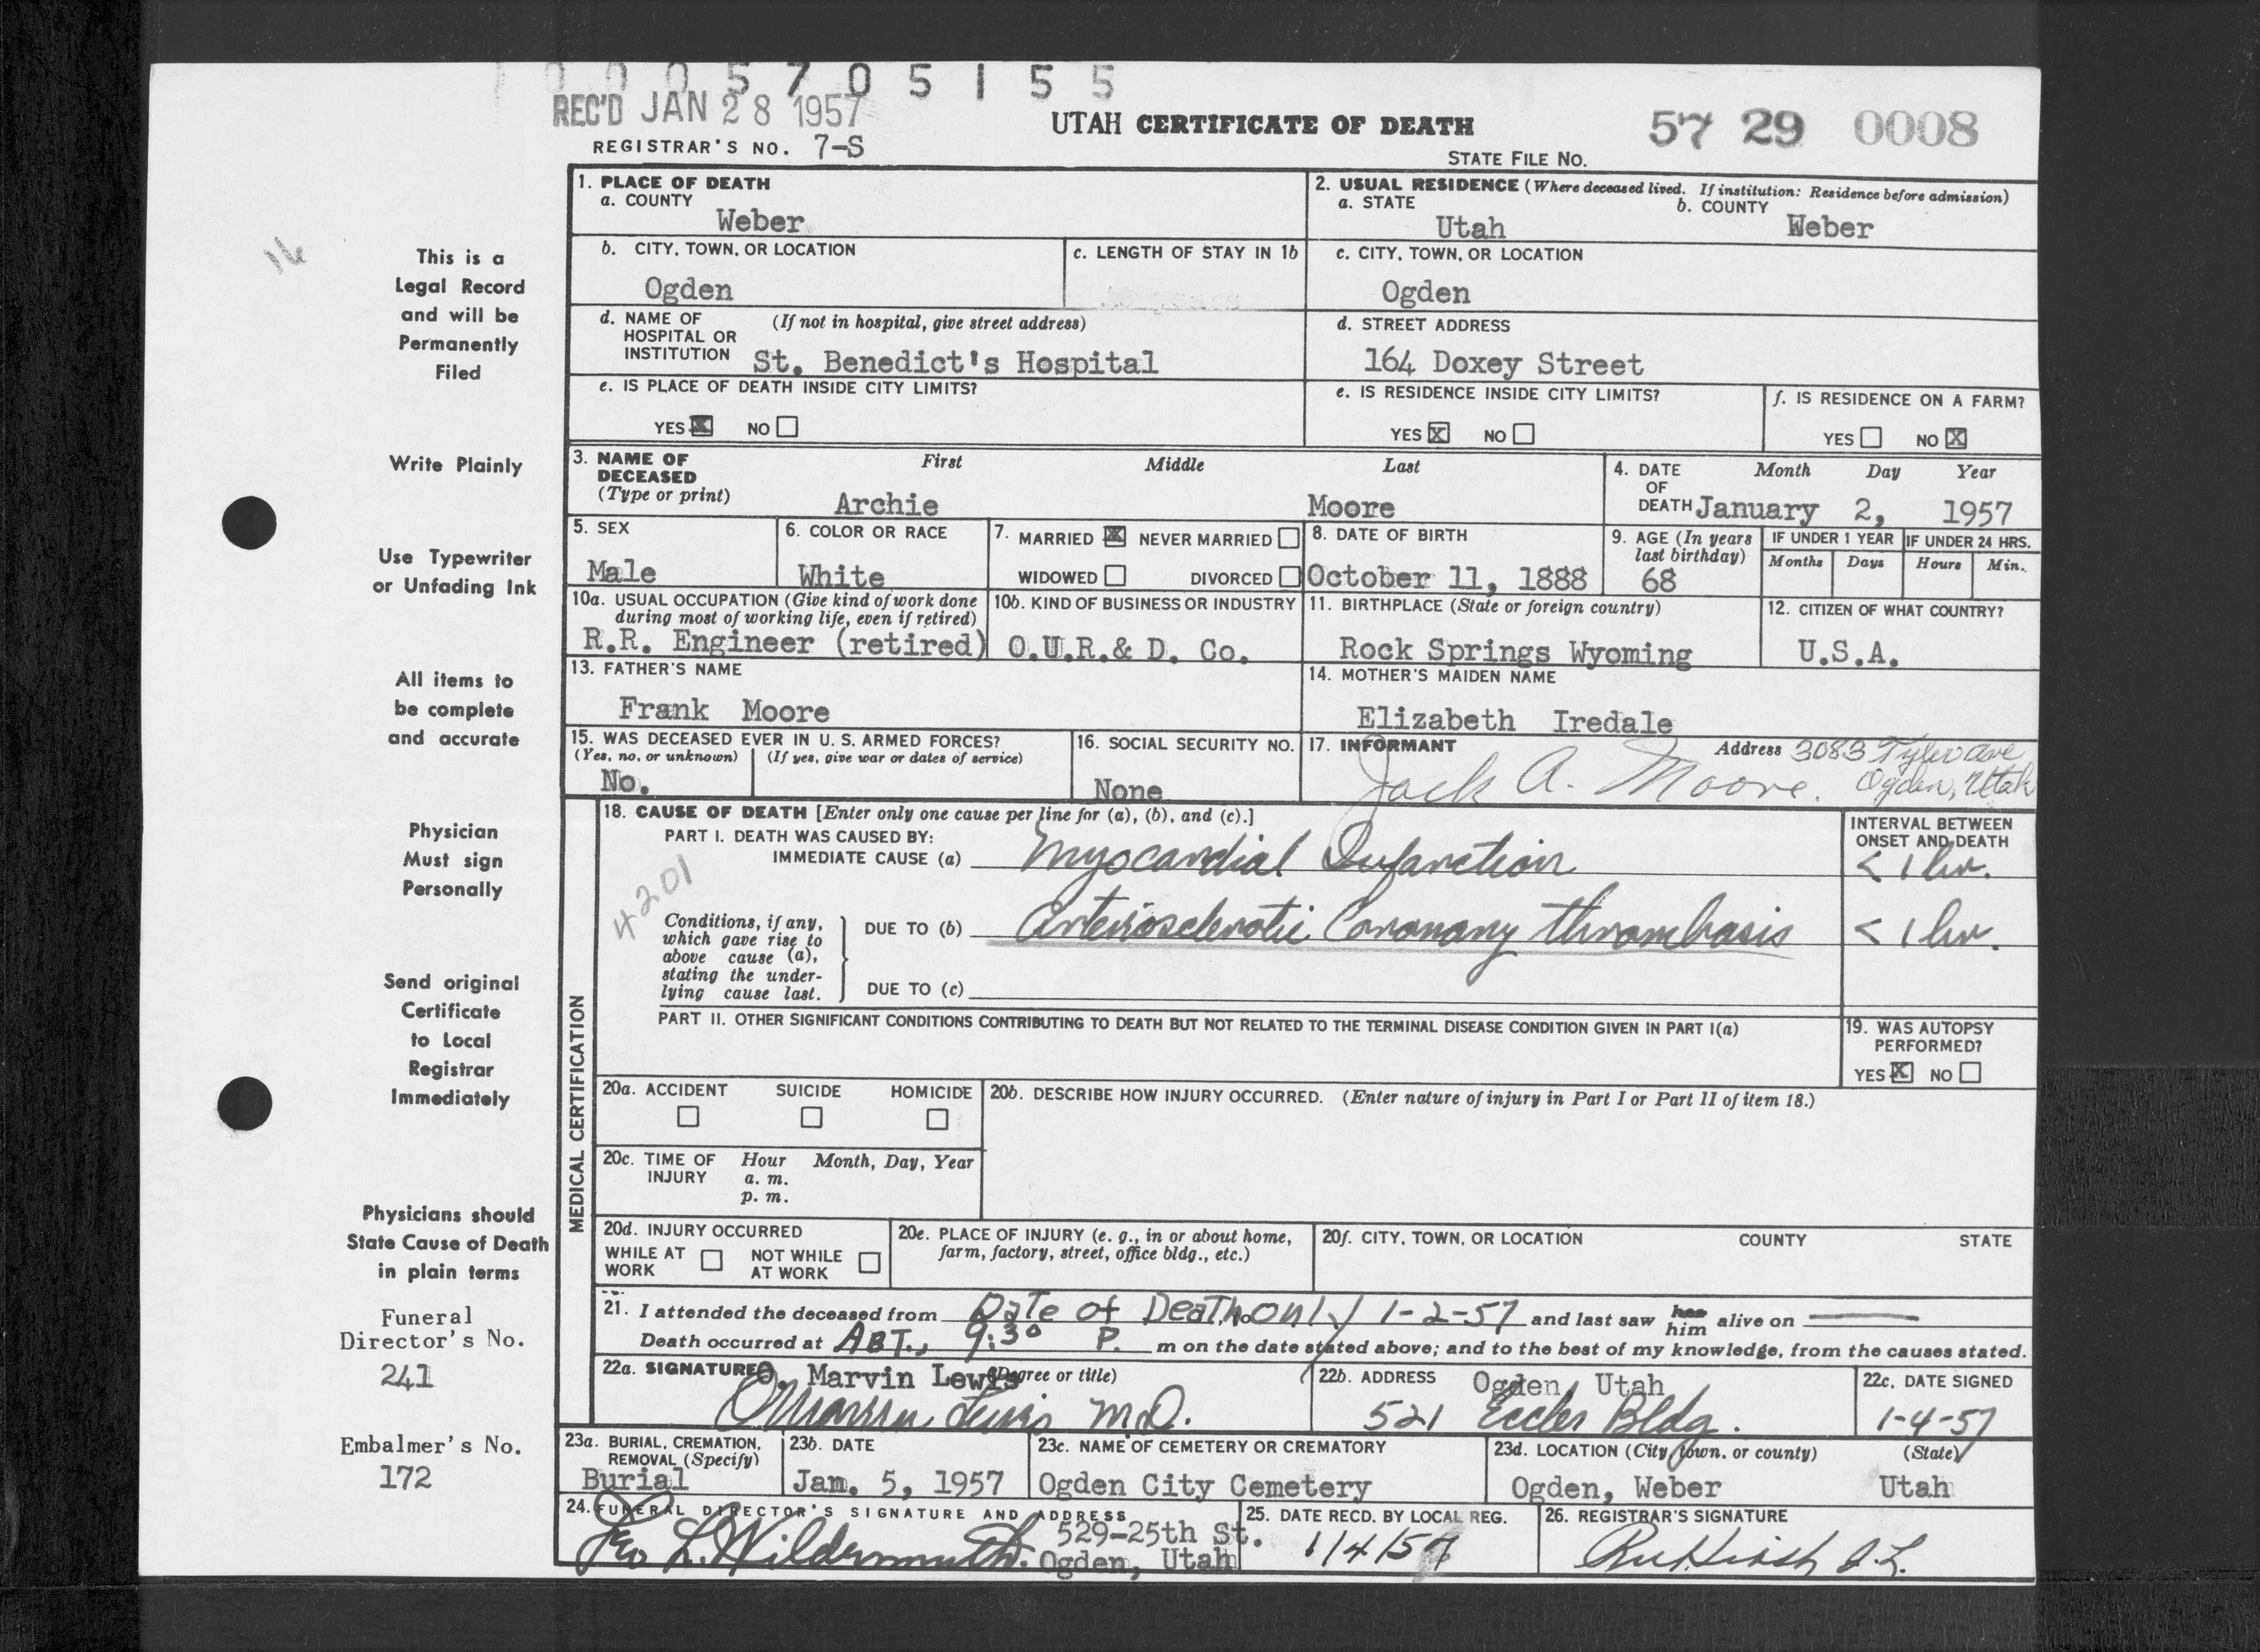 0005705155
REC'D JAN 28 1957
UTAH CERTIFICATE OF DEATH
57 29 0008
REGISTRAR'S NO. 7-S
STATE FILE NO.
16
This is a
Legal Record
and will be
Permanently
Filed
Write Plainly
Use Typewriter
or Unfading Ink
All items to
be complete
and accurate
Physician
Must sign
Personally
Send original
Certificate
to Local
Registrar
Immediately
Physicians should
State Cause of Death
in plain terms
Funeral
Director's No.
241
Embalmer's No.
172
1. PLACE OF DEATH
a. COUNTY
Weber
2. USUAL RESIDENCE (Where deceased lived. If institution: Residence before admission)
a. STATE b. COUNTY
Utah Weber
b. CITY, TOWN, OR LOCATION
Ogden
c. LENGTH OF STAY IN 1b
c. CITY, TOWN, OR LOCATION
Ogden
d. NAME OF (If not in hospital, give street address)
HOSPITAL OR
INSTITUTION St. Benedict's Hospital
d. STREET ADDRESS
164 Doxey Street
e. IS PLACE OF DEATH INSIDE CITY LIMITS?
YES X NO
e. IS RESIDENCE INSIDE CITY LIMITS?
YES X NO
f. IS RESIDENCE ON A FARM?
YES NO X
3. NAME OF DECEASED (Type or print)
First Middle Last
Archie Moore
4. DATE OF DEATH Month Day Year
January 2, 1957
5. SEX
Male
6. COLOR OR RACE
White
7. MARRIED X NEVER MARRIED
WIDOWED DIVORCED
8. DATE OF BIRTH
October 11, 1888
9. AGE (In years last birthday)
68
IF UNDER 1 YEAR
Months Days
IF UNDER 24 HRS.
Hours Min.
10a. USUAL OCCUPATION (Give kind of work done
during most of working life, even if retired)
R.R. Engineer (retired)
10b. KIND OF BUSINESS OR INDUSTRY
O.U.R.& D. Co.
11. BIRTHPLACE (State or foreign country)
Rock Springs Wyoming
12. CITIZEN OF WHAT COUNTRY?
U.S.A.
13. FATHER'S NAME
Frank Moore
14. MOTHER'S MAIDEN NAME
Elizabeth Iredale
15. WAS DECEASED EVER IN U. S. ARMED FORCES?
(Yes, no, or unknown) (If yes, give war or dates of service)
No.
16. SOCIAL SECURITY NO.
None
17. INFORMANT Address 3083 Tyler Ave
Jack A. Moore. Ogden, Utah
MEDICAL CERTIFICATION
18. CAUSE OF DEATH [Enter only one cause per line for (a), (b), and (c).]
PART I. DEATH WAS CAUSED BY:
IMMEDIATE CAUSE (a) Myocardial Infarction
INTERVAL BETWEEN
ONSET AND DEATH
< 1 hr.
4201
Conditions, if any,
which gave rise to
above cause (a),
stating the under-
lying cause last.
DUE TO (b) Arteriosclerotic Coronary thrombosis
< 1 hr.
DUE TO (c)
PART II. OTHER SIGNIFICANT CONDITIONS CONTRIBUTING TO DEATH BUT NOT RELATED TO THE TERMINAL DISEASE CONDITION GIVEN IN PART I(a)
19. WAS AUTOPSY
PERFORMED?
YES X NO
20a. ACCIDENT SUICIDE HOMICIDE
20b. DESCRIBE HOW INJURY OCCURRED. (Enter nature of injury in Part I or Part II of item 18.)
20c. TIME OF INJURY Hour Month, Day, Year
a. m.
p. m.
20d. INJURY OCCURRED
WHILE AT WORK NOT WHILE AT WORK
20e. PLACE OF INJURY (e. g., in or about home,
farm, factory, street, office bldg., etc.)
20f. CITY, TOWN, OR LOCATION COUNTY STATE
21. I attended the deceased from Date of Death only 1-2-57 and last saw her him alive on
Death occurred at ABT., 9:30 P. m on the date stated above; and to the best of my knowledge, from the causes stated.
22a. SIGNATURE (Degree or title)
O. Marvin Lewis
O Marvin Lewis M.D.
22b. ADDRESS Ogden, Utah
521 Eccles Bldg.
22c. DATE SIGNED
1-4-57
23a. BURIAL, CREMATION,
REMOVAL (Specify)
Burial
23b. DATE
Jan. 5, 1957
23c. NAME OF CEMETERY OR CREMATORY
Ogden City Cemetery
23d. LOCATION (City, town, or county) (State)
Ogden, Weber Utah
24. FUNERAL DIRECTOR'S SIGNATURE AND ADDRESS
Leo L. Wildermuth. 529-25th St.
Ogden, Utah
25. DATE RECD. BY LOCAL REG.
1/4/57
26. REGISTRAR'S SIGNATURE